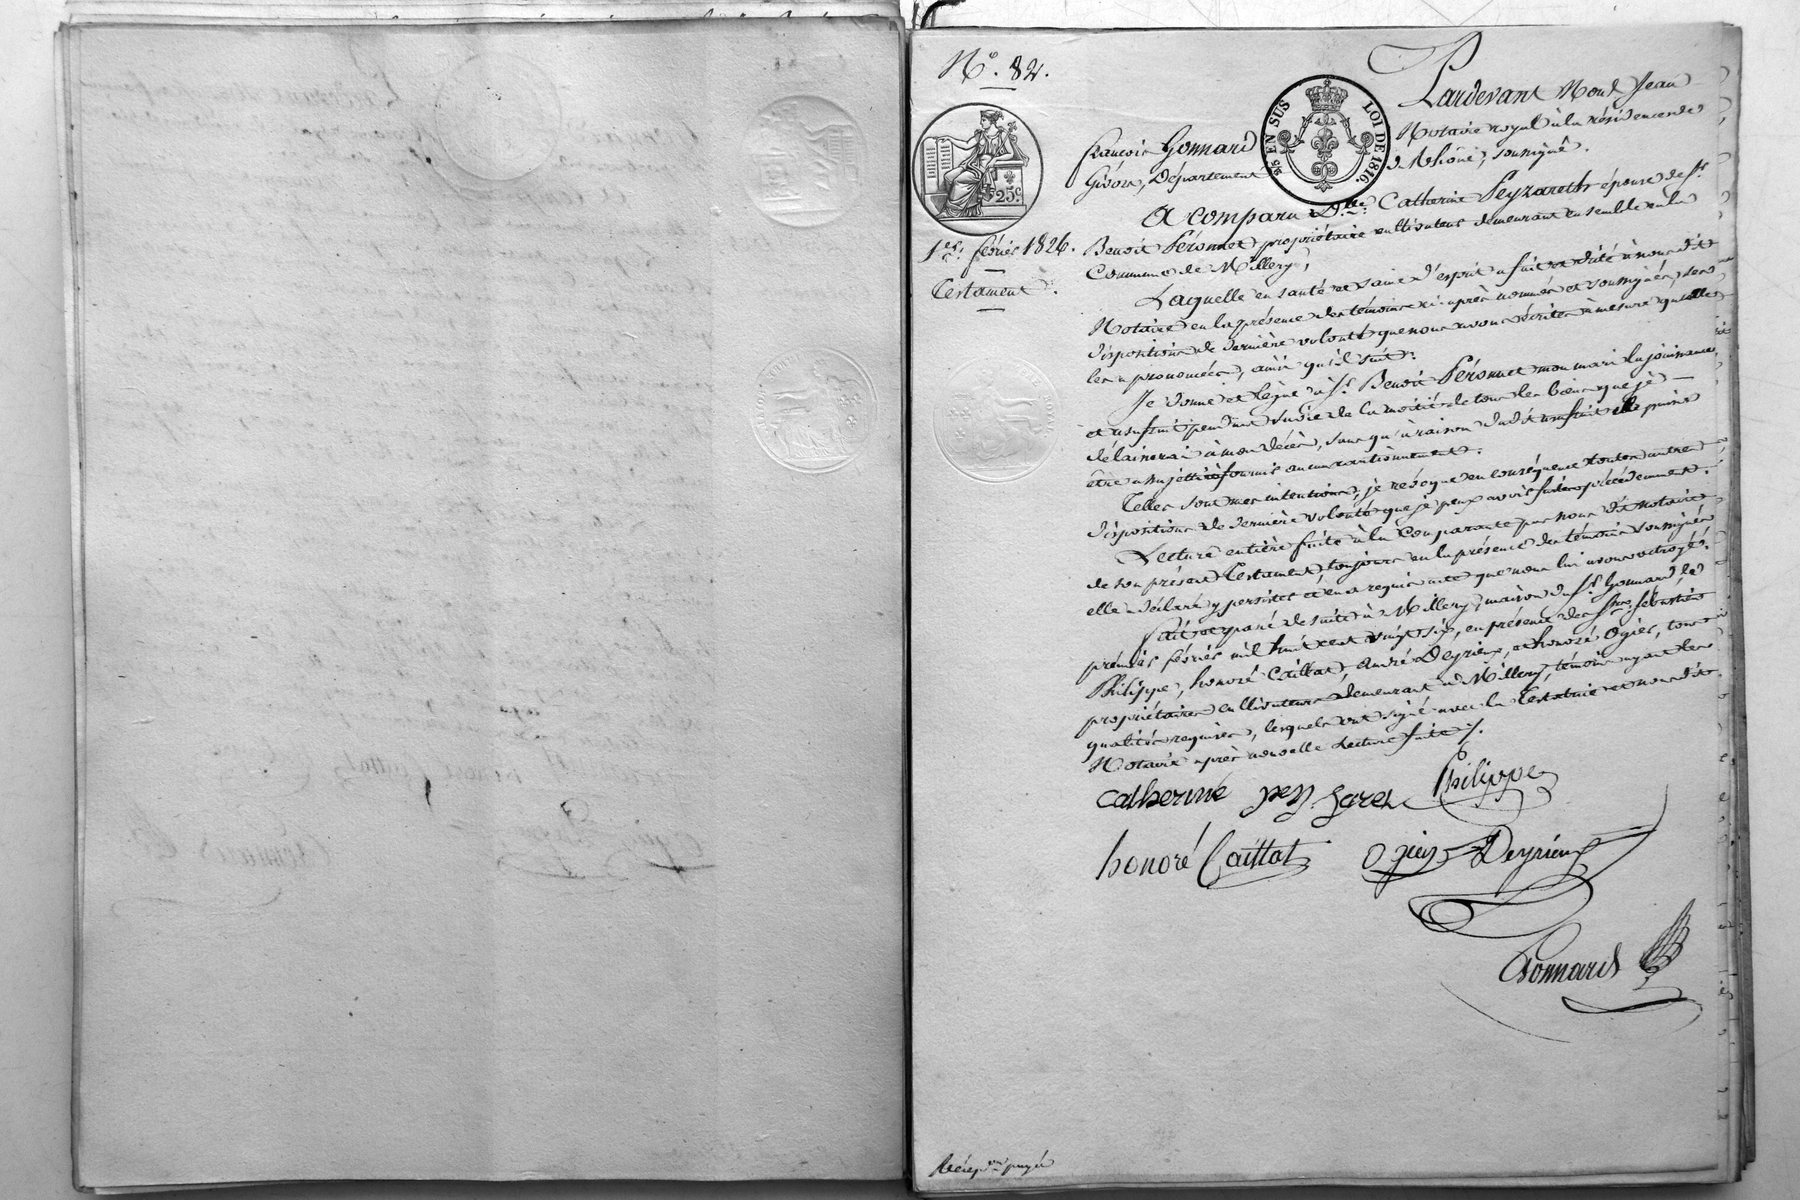 N.º 82.
Pardevant Nous Jean
François Gonnard Notaire royal à la résidence de
Givors, Département du Rhône, soussigné.
5 EN SUS LOI DE 1816.
25 c.
1.er février 1826.
Testament.
A comparu D.lle Catherine Peyzareth épouse de S.r
Benoit Péronnet propriétaire cultivateur demeurant ensemble en la
Commune de Millery;
Laquelle en santé et saine d'esprit a fait et dicté à nous dit
Notaire en la présence des témoins ci-après nommés et soussignés, ses
dispositions de dernière volonté que nous avons écrites à mesure qu'elle
les a prononcées, ainsi qu'il suit:
Je donne et lègue à S.r Benoit Péronnet mon mari la jouissance
et usufruit pendant sa vie de la moitié de tous les biens que je
délaisserai à mon décès, sans qu'à raison dudit usufruit il puisse
être assujetti à fournir aucun cautionnement.
Telles sont mes intentions, je révoque en conséquence toutes autres
dispositions de dernière volonté que je peux avoir faites précédemment.
Lecture entière faite à la Comparante par nous dit notaire
de son présent Testament, toujours en la présence des témoins soussignés
elle a déclaré y persister et en a requis acte que nous lui avons octroyé.
Fait et passé de suite à Millery, maison du S.r Gonnard, le
premier février mil huit cent vingt six, en présence des S.rs Sébastien
Philippe, honoré Caillat, André Deyrieux, et honoré Ogier, tous
propriétaires cultivateurs demeurant à Millery, témoins ayant les
qualités requises, lesquels ont signé avec la Testatrice et nous dit
Notaire après nouvelle lecture faite ./.
catherine peyzaret Philippe
honoré Caillat Ogier Deyrieux
Gonnard